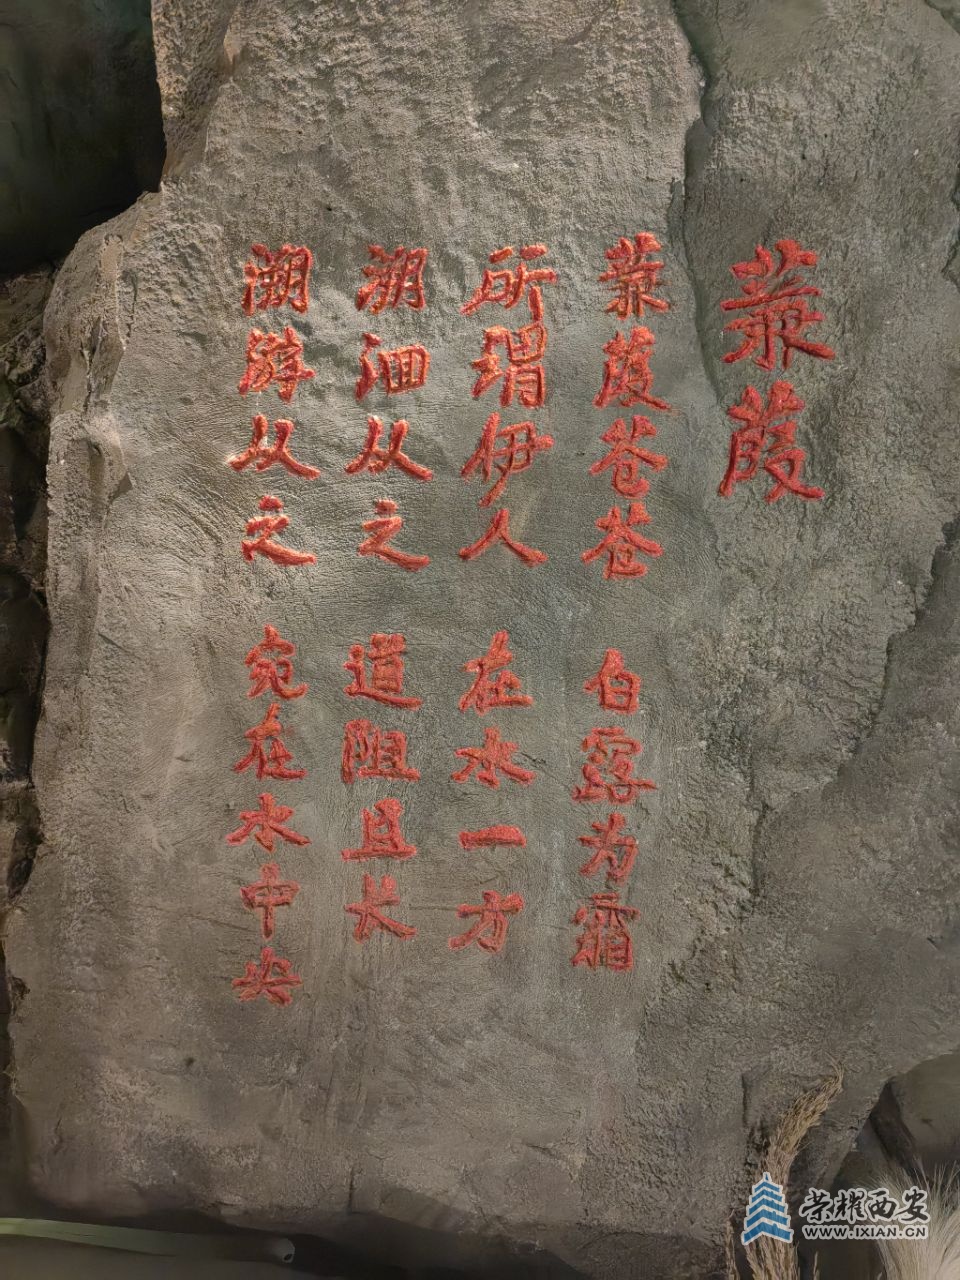 蒹葭
蒹葭苍苍 白露为霜
所谓伊人 在水一方
溯洄从之 道阻且长
溯游从之 宛在水中央
荣耀西安
WWW.IXIAN.CN